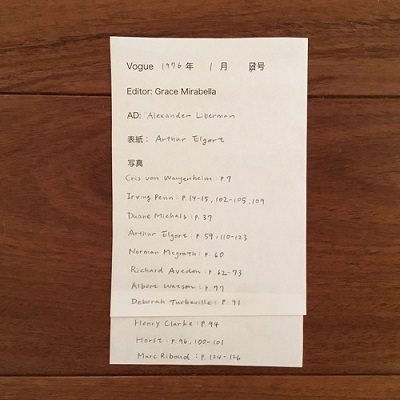 Vogue 1976年 1月 号
Editor: Grace Mirabella
AD: Alexander Liberman
表紙: Arthur Elgort
写真
Cris von Wangenheim: P.7
Irving Penn: P.14-15, 102-105, 109
Duane Michals: P.37
Arthur Elgort: P.59, 110-123
Norman Mcgrath: P.60
Richard Avedon: P.62-73
Albert Watson: P.77
Deborah Turbeville: P.
Henry Clarke: P.94
Horst: P.96, 100-101
Marc Riboud: P.124-126